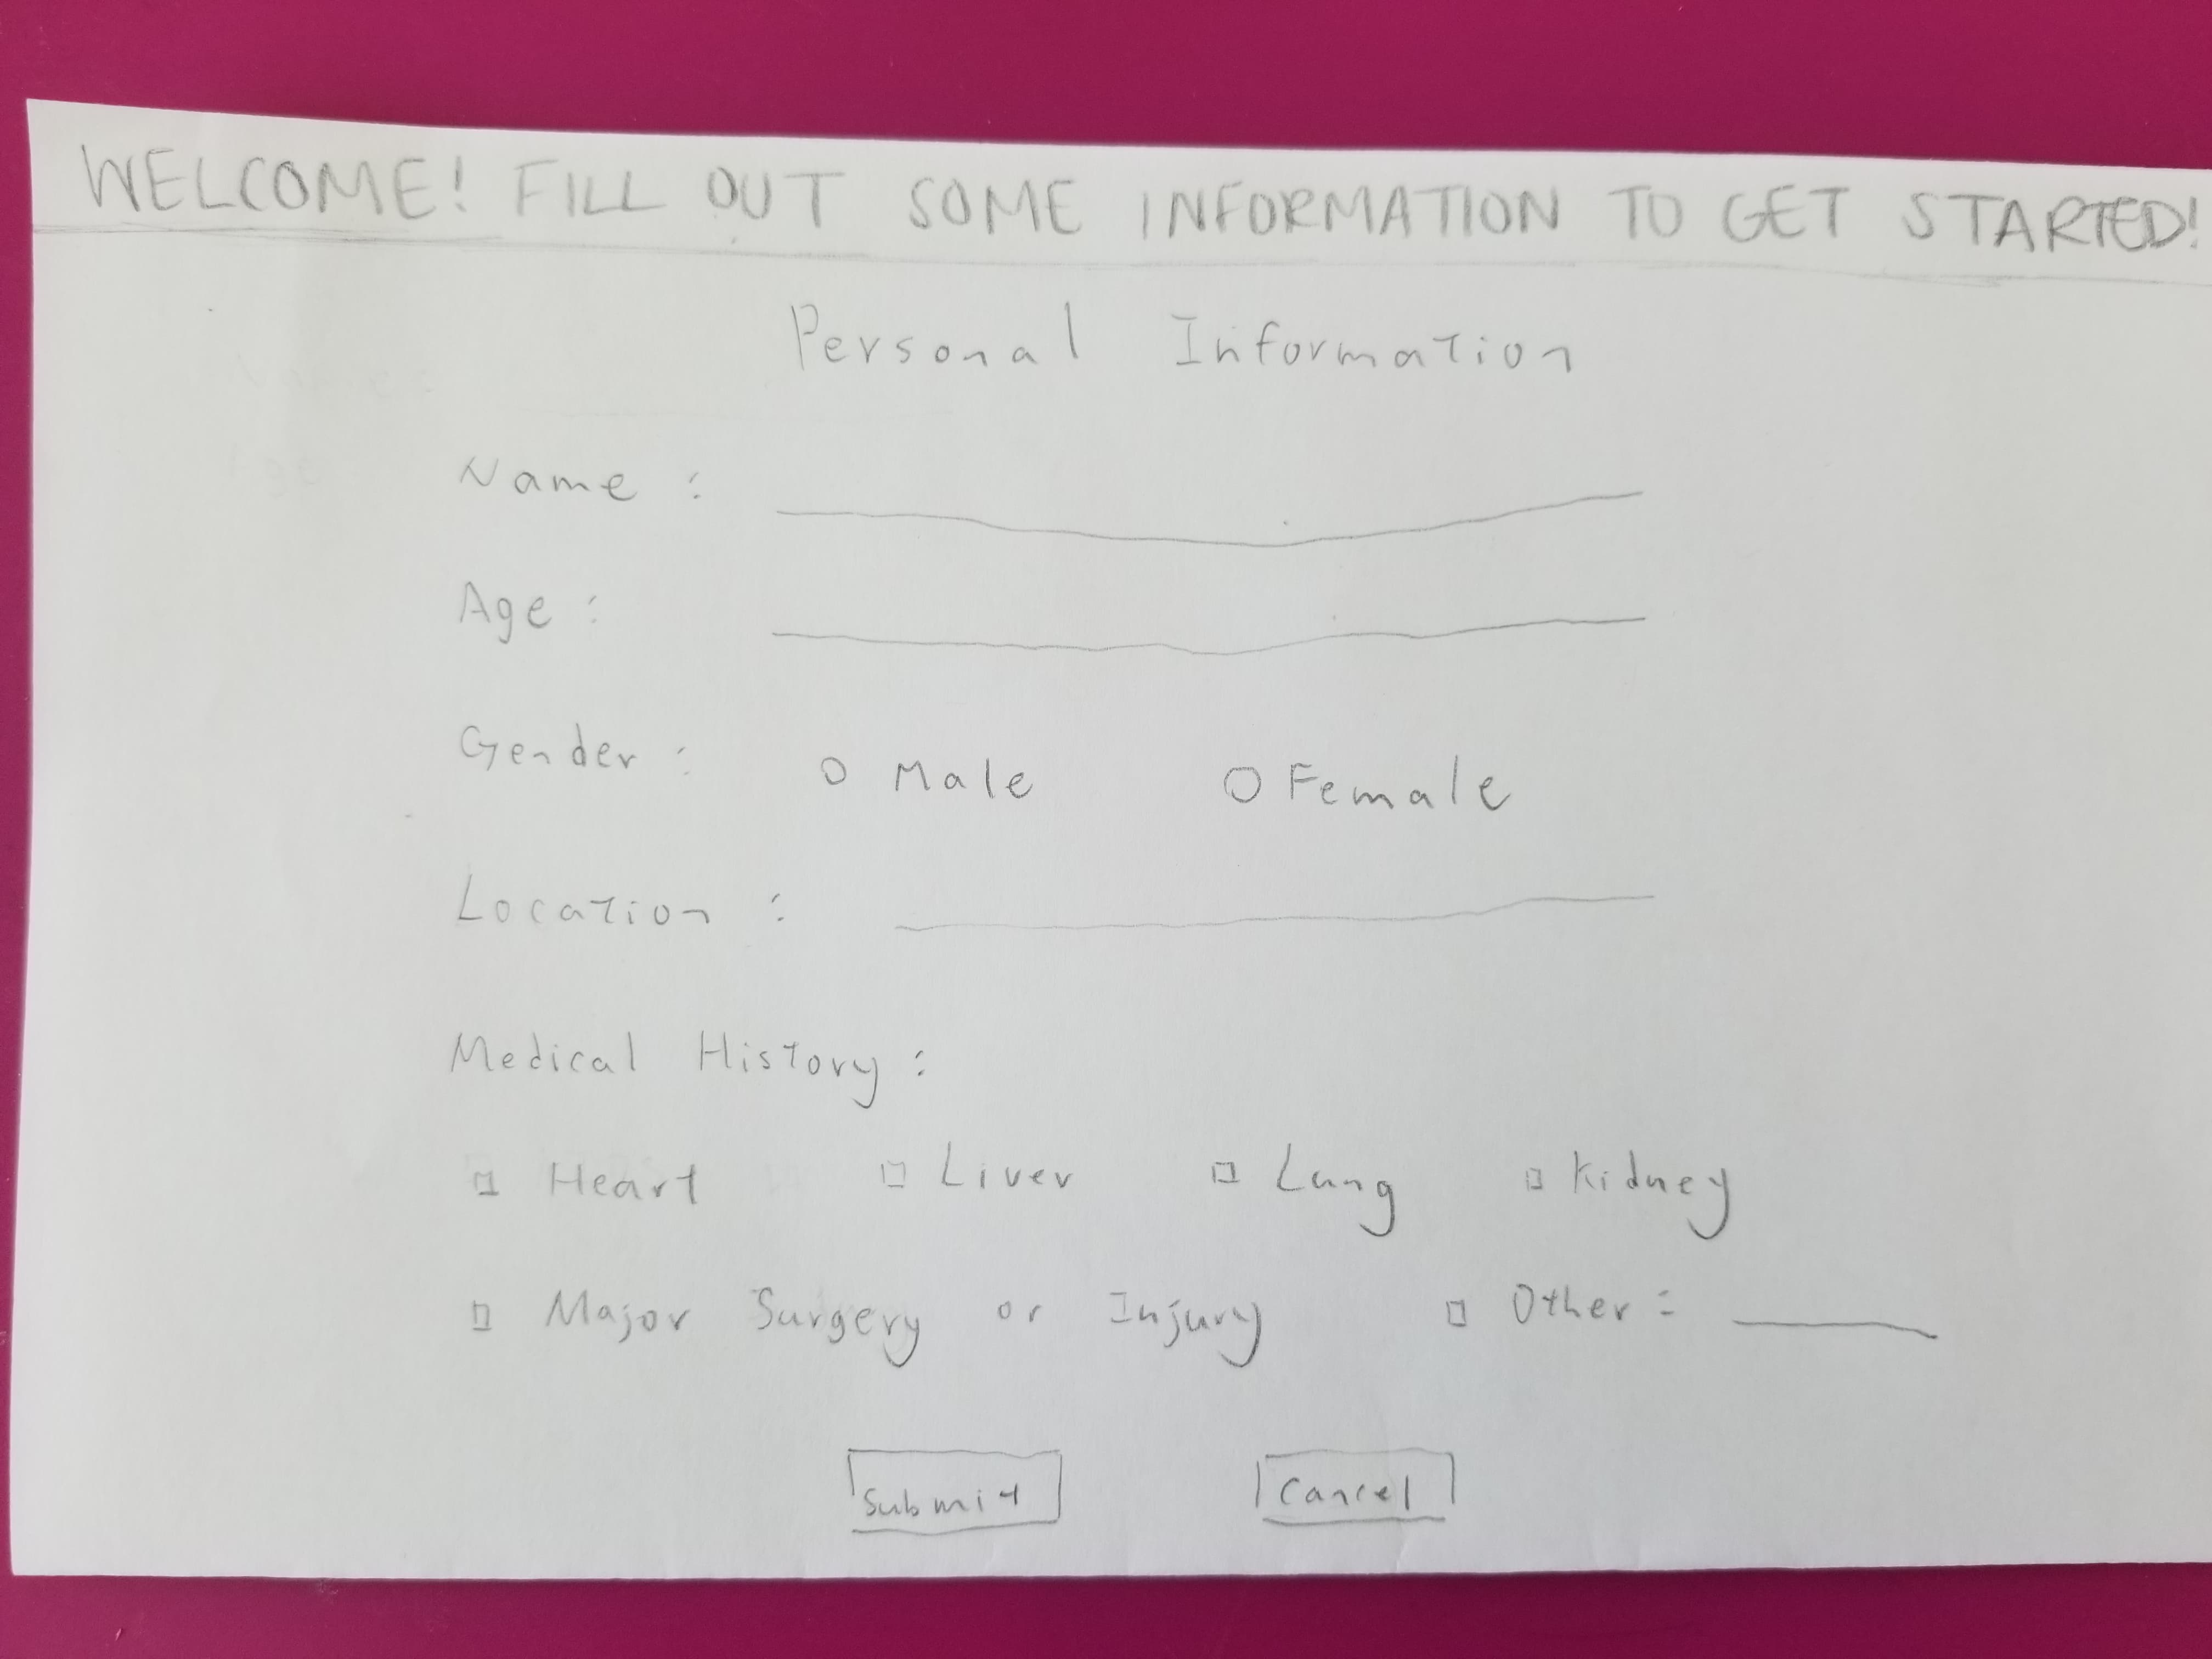 WELCOME! FILL OUT SOME INFORMATION TO GET STARTED!
Personal Information
Name :
Age :
Gender : Male Female
Location :
Medical History :
Heart Liver Lung Kidney
Major Surgery or Injury Other :
Submit Cancel